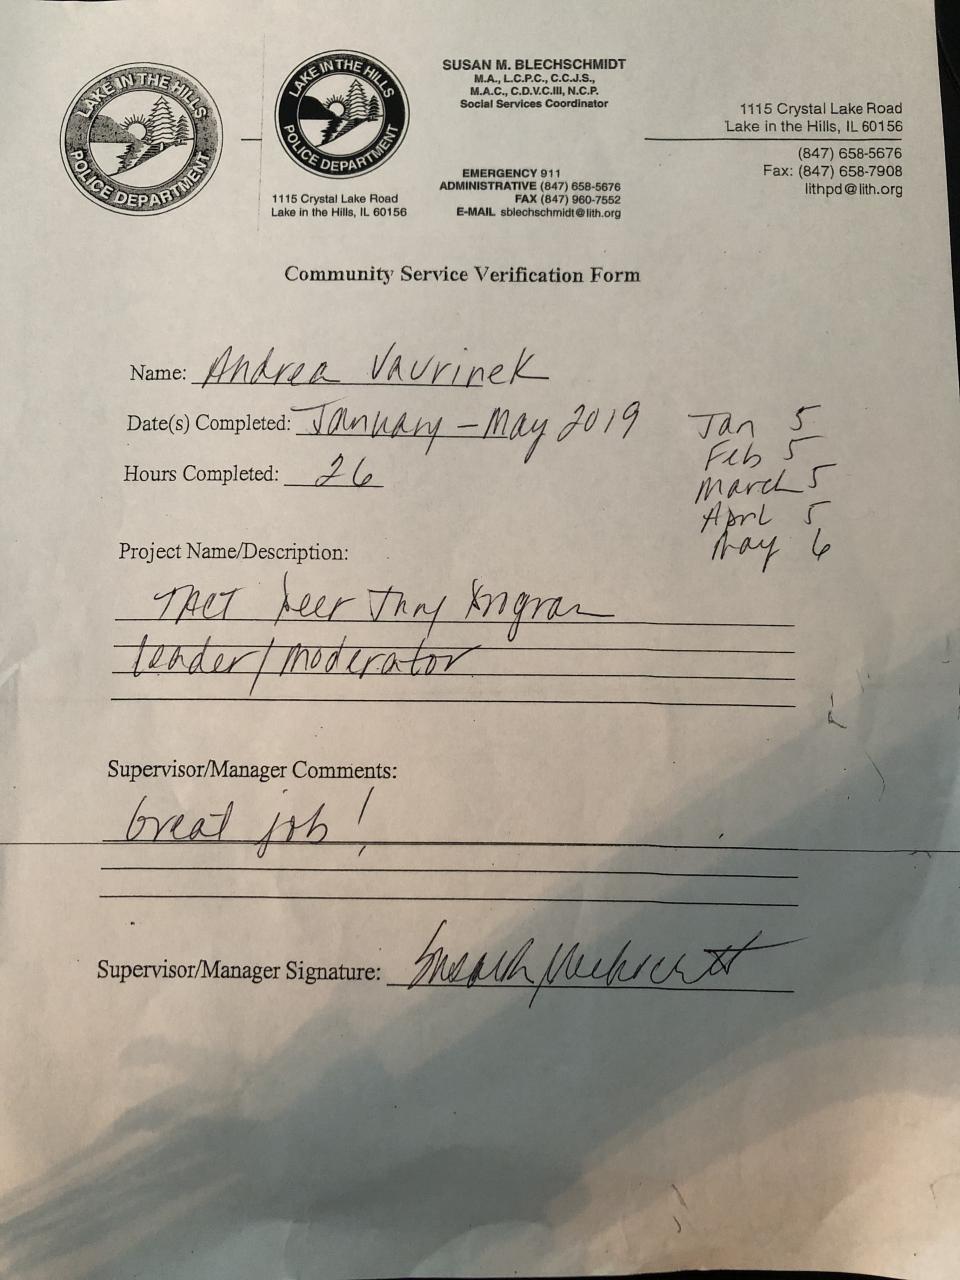 LAKE IN THE HILLS
POLICE DEPARTMENT
LAKE IN THE HILLS
POLICE DEPARTMENT
1115 Crystal Lake Road
Lake in the Hills, IL 60156
SUSAN M. BLECHSCHMIDT
M.A., L.C.P.C., C.C.J.S.,
M.A.C., C.D.V.C.III, N.C.P.
Social Services Coordinator
EMERGENCY 911
ADMINISTRATIVE (847) 658-5676
FAX (847) 960-7552
E-MAIL sblechschmidt@lith.org
1115 Crystal Lake Road
Lake in the Hills, IL 60156
(847) 658-5676
Fax: (847) 658-7908
lithpd@lith.org
Community Service Verification Form
Name: Andrea Vavrinek
Date(s) Completed: January - May 2019
Hours Completed: 26
Jan 5
Feb 5
March 5
April 5
May 6
Project Name/Description:
TACT Peer Jury Program
Leader/Moderator
Supervisor/Manager Comments:
Great job!
Supervisor/Manager Signature: